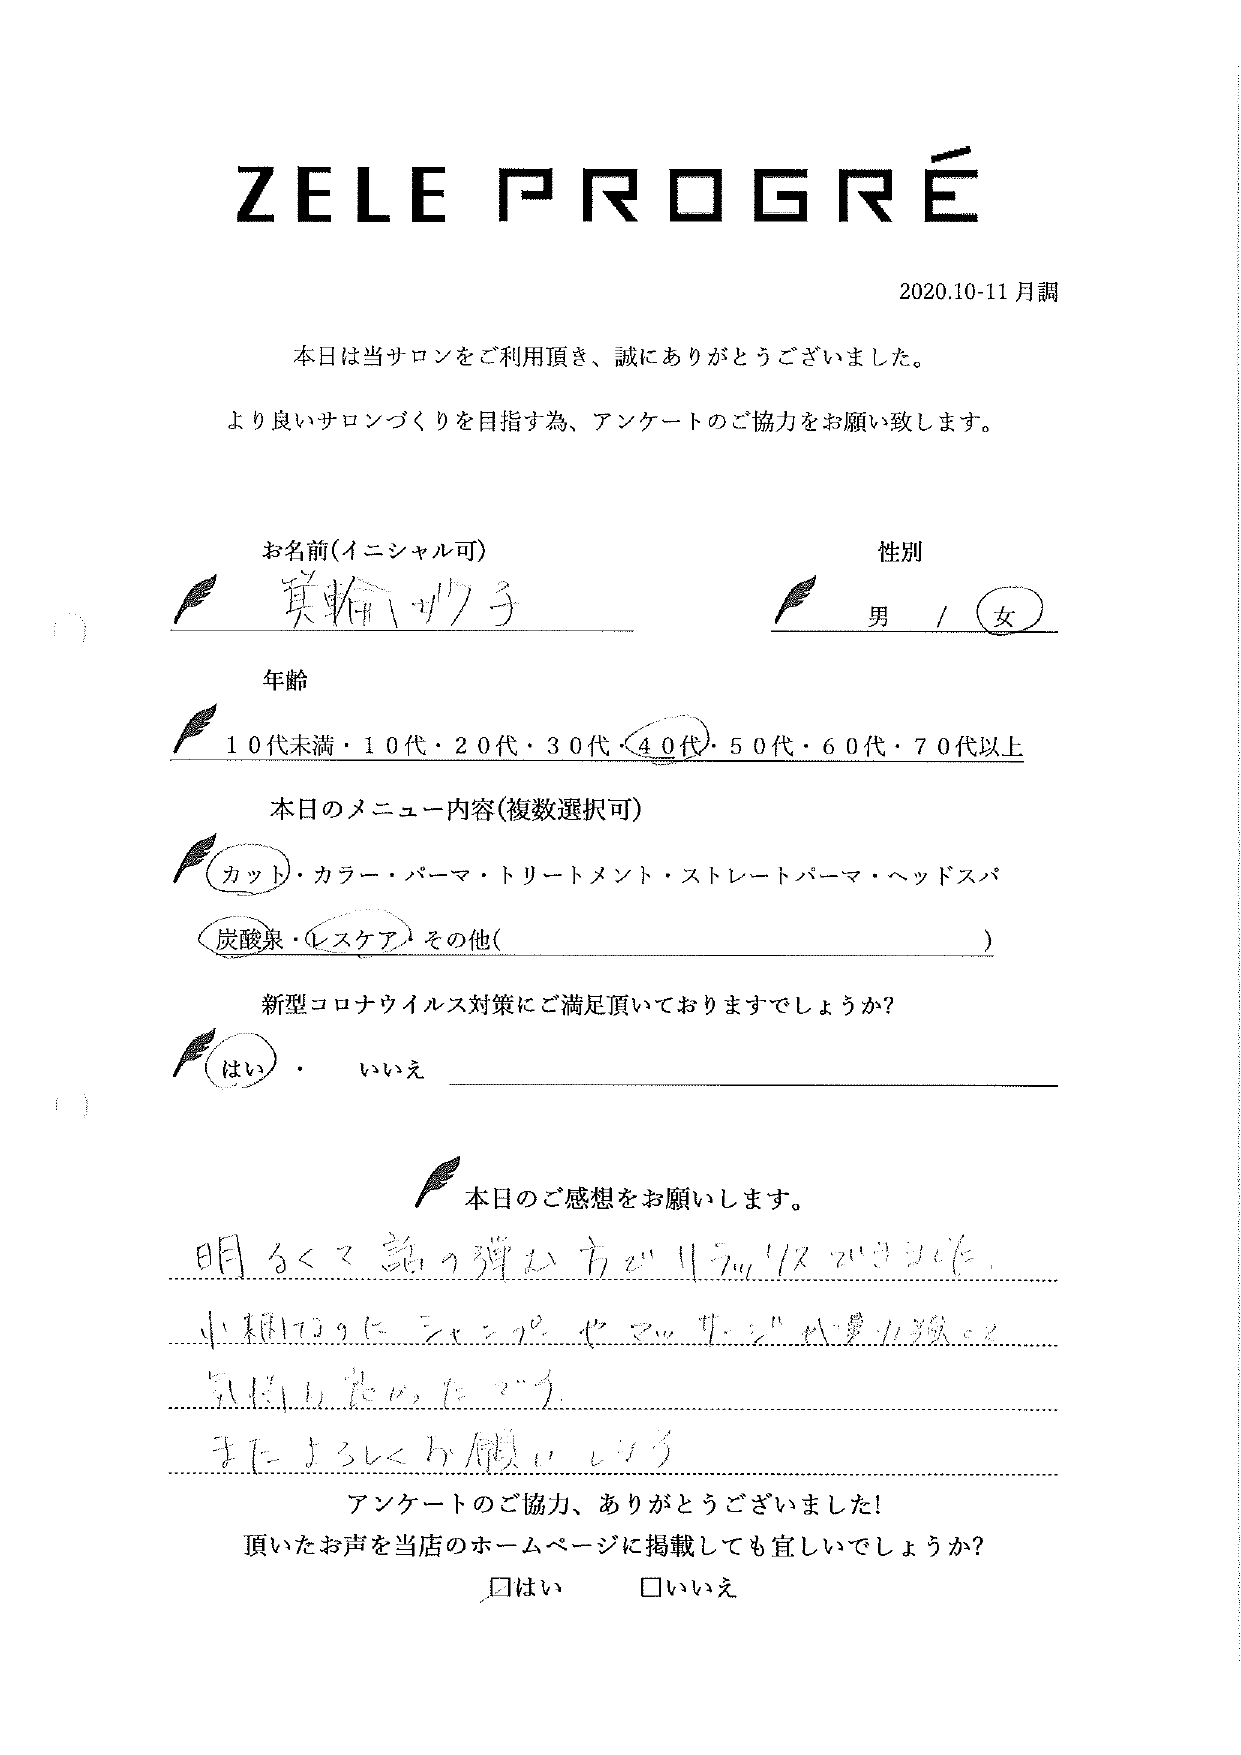 ZELE PROGRÉ
2020.10-11 月調
本日は当サロンをご利用頂き、誠にありがとうございました。
より良いサロンづくりを目指す為、アンケートのご協力をお願い致します。
お名前(イニシャル可)
性別
箕輪
男 / 女
年齢
10代未満・10代・20代・30代・40代・50代・60代・70代以上
本日のメニュー内容(複数選択可)
カット・カラー・パーマ・トリートメント・ストレートパーマ・ヘッドスパ
炭酸泉・レスケア・その他( )
新型コロナウイルス対策にご満足頂いておりますでしょうか?
はい ・ いいえ
本日のご感想をお願いします。
明るくて話の弾む方でリラックスできました。
シャンプーやマッサージが
気持ち良かったです。
またよろしくお願いします
アンケートのご協力、ありがとうございました!
頂いたお声を当店のホームページに掲載しても宜しいでしょうか?
☑はい □いいえ